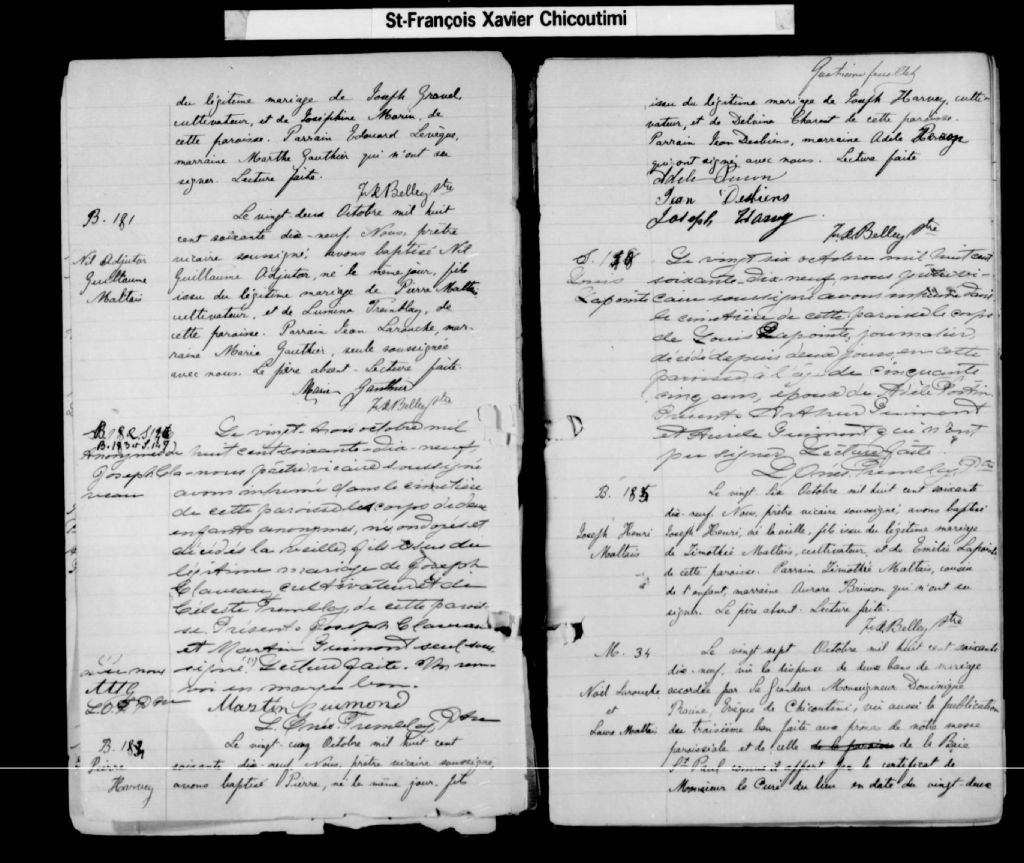 St-François Xavier Chicoutimi
du légitime mariage de Joseph Gravel,
cultivateur, et de Joséphine Morin, de
cette paroisse. Parrain Edouard Levêque,
marraine Marthe Gauthier qui n'ont su
signer. Lecture faite.
F.X Belley Ptre
B. 181
Nil Adjutor
Guillaume
Maltais
Le vingt-deux Octobre mil huit
cent soixante dix-neuf. Nous, prêtre
vicaire soussigné avons baptisé Nil
Guillaume Adjutor, né le même jour, fils
issu du légitime mariage de Pierre Maltais
cultivateur, et de Lumina Tremblay, de
cette paroisse. Parrain Jean Larouche, mar-
raine Marie Gauthier, seule soussignée
avec nous. Le père absent. Lecture faite.
Marie Gauthier
F.X Belley Ptre
B. 183 et S. 147
Anonymes de
Joseph Cla-
veau
Le vingt-trois octobre mil
huit cent soixante-dix-neuf,
nous prêtre vicaire soussigné
avons inhumé dans le cimetière
de cette paroisse les corps de deux
enfants anonymes, nés ondoyés et
décédés la veille, fils issus du
légitime mariage de Joseph
Claveau, cultivateur et de
Céleste Tremblay de cette parois-
se. Présents Joseph Claveau
et Martin Guimont seul sous-
signé. Lecture faite. Un ren-
voi en marge bon.
avec nous
M G
L.O.T. Ptre
Martin Guimond
L. Onés. Tremblay, Ptre
B. 184
Pierre
Harvey
Le vingt-cinq Octobre mil huit cent
soixante dix-neuf. Nous, prêtre vicaire soussigné,
avons baptisé Pierre, né le même jour, fils
Quatrième feuillet
issu du légitime mariage de Joseph Harvey, culti-
vateur, et de Delaina Charent de cette paroisse.
Parrain Jean Desbiens, marraine Adèle
qui ont signé avec nous. Lecture faite
Adèle
Jean Desbiens
Joseph Harvey
F.X Belley Ptre
S. 148
Louis
Lapointe
Le vingt six octobre mil huit cent
soixante-dix-neuf, nous prêtre vi-
caire soussigné avons inhumé dans
le cimetière de cette paroisse le corps
de Louis Lapointe, journalier,
décédé depuis deux jours en cette
paroisse, à l'âge de cinquante
cinq ans, époux de Adèle Potvin.
Présents Arthur Guimont
et Guimont qui n'ont
pu signer. Lecture faite.
L. Onés. Tremblay, Ptre
B. 185
Joseph Henri
Maltais
Le vingt-six Octobre mil huit cent soixante
dix-neuf. Nous, prêtre vicaire soussigné, avons baptisé
Joseph Henri, né la veille, fils issu du légitime mariage
de Timothée Maltais, cultivateur, et de Emilie Lapointe
de cette paroisse. Parrain Timothée Maltais, cousin
de l'enfant, marraine Aurore Brisson qui n'ont su
signer. Le père absent. Lecture faite.
F.X Belley Ptre
M. 34
Noël Larouche
et
Laure Maltais
Le vingt sept Octobre mil huit cent soixante
dix-neuf, vu la dispense de deux bans de mariage
accordée par Sa Grandeur Monseigneur Dominique
Racine, Evêque de Chicoutimi, vu aussi la publication
du troisième ban faite aux prône de notre messe
paroissiale et de celle de la paroisse de la Baie
St Paul comme il appert par le certificat de
Monsieur le Curé du lieu en date du vingt-deux